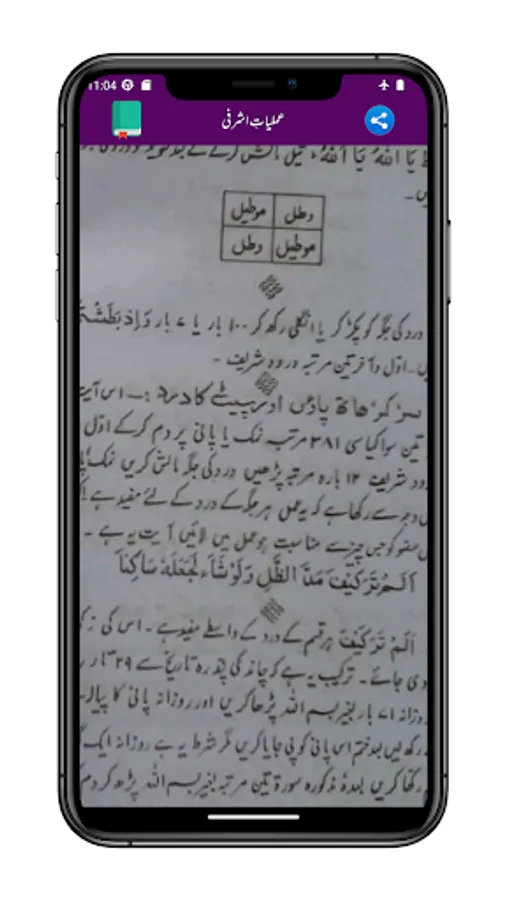 11:04
عملیاتِ اشرفی
ط یَا اَللہُ یَا اَللہُ، تیل مالش کرنے کے بعد
یں۔
وطل موطیل
موطیل وطل
درد کی جگہ کو پکڑ کر یا انگلی رکھ کر ۱۰۰ بار یا ۷ بار وَاِذَ بَطَشْتُ
یں۔ اوّل و آخر تین مرتبہ درود شریف ۔
سر، کمر، ہاتھ پاؤں اور پیٹ کا درد :۔ اس آیت
تین سو اکیاسی ۳۸۱ مرتبہ نمک یا پانی پر دم کر کے اوّل
ود شریف ۱۲ بارہ مرتبہ پڑھیں درد کی جگہ مالش کریں نمک پا
وجہ سے رکھا ہے کہ یہ عمل ہر جگہ کے درد کے لئے مفید ہے
عضو کو جس چیز سے مناسبت ہو عمل میں لائیں آیت یہ ہے ۔
اَلَمْ تَرَ کَیْفَ مَدَّ الظِّلَّ وَلَوْشَآءَ لَجَعَلَہٗ سَاکِنًا
اَلَمْ تَرَکَیْفَ ہر قسم کے درد کے واسطے مفید ہے۔ اس کی ز
دی جائے۔ ترکیب یہ ہے کہ چاند کی پندرہ تاریخ سے ۲۹ تار
روزانہ ۷۱ بار بغیر بسم اللہ پڑھا کریں اور روزانہ پانی کا پیالہ
رکھ لیں بعد ختم اس پانی کو پی جایا کریں مگر شرط یہ ہے روزانہ ایک
رکھا کریں بعدہٗ مذکورہ سورۃ تین مرتبہ بغیر بسم اللہ پڑھ کر دم ک